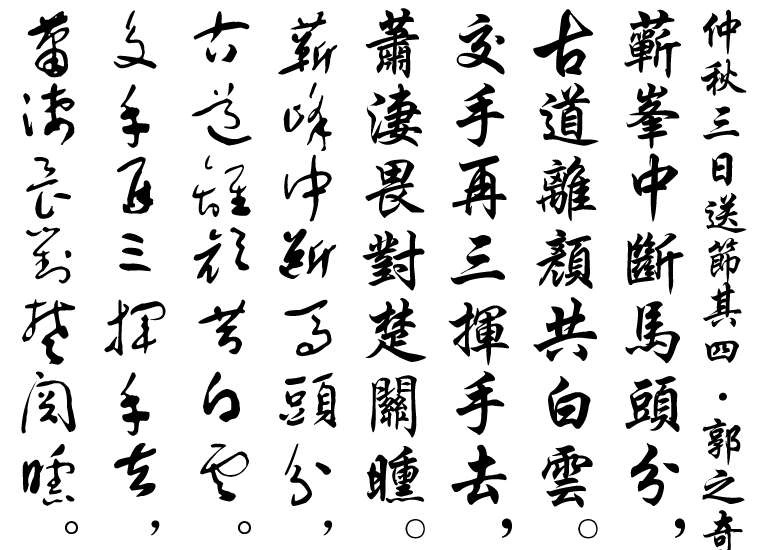 仲秋三日送節其四・郭之奇
蘄峯中斷馬頭分，
古道離顏共白雲。
交手再三揮手去，
蕭淒畏對楚關曛。
蘄峰中斷馬頭分，
古道離顏共白雲。
交手再三揮手去，
蕭淒畏對楚關曛。